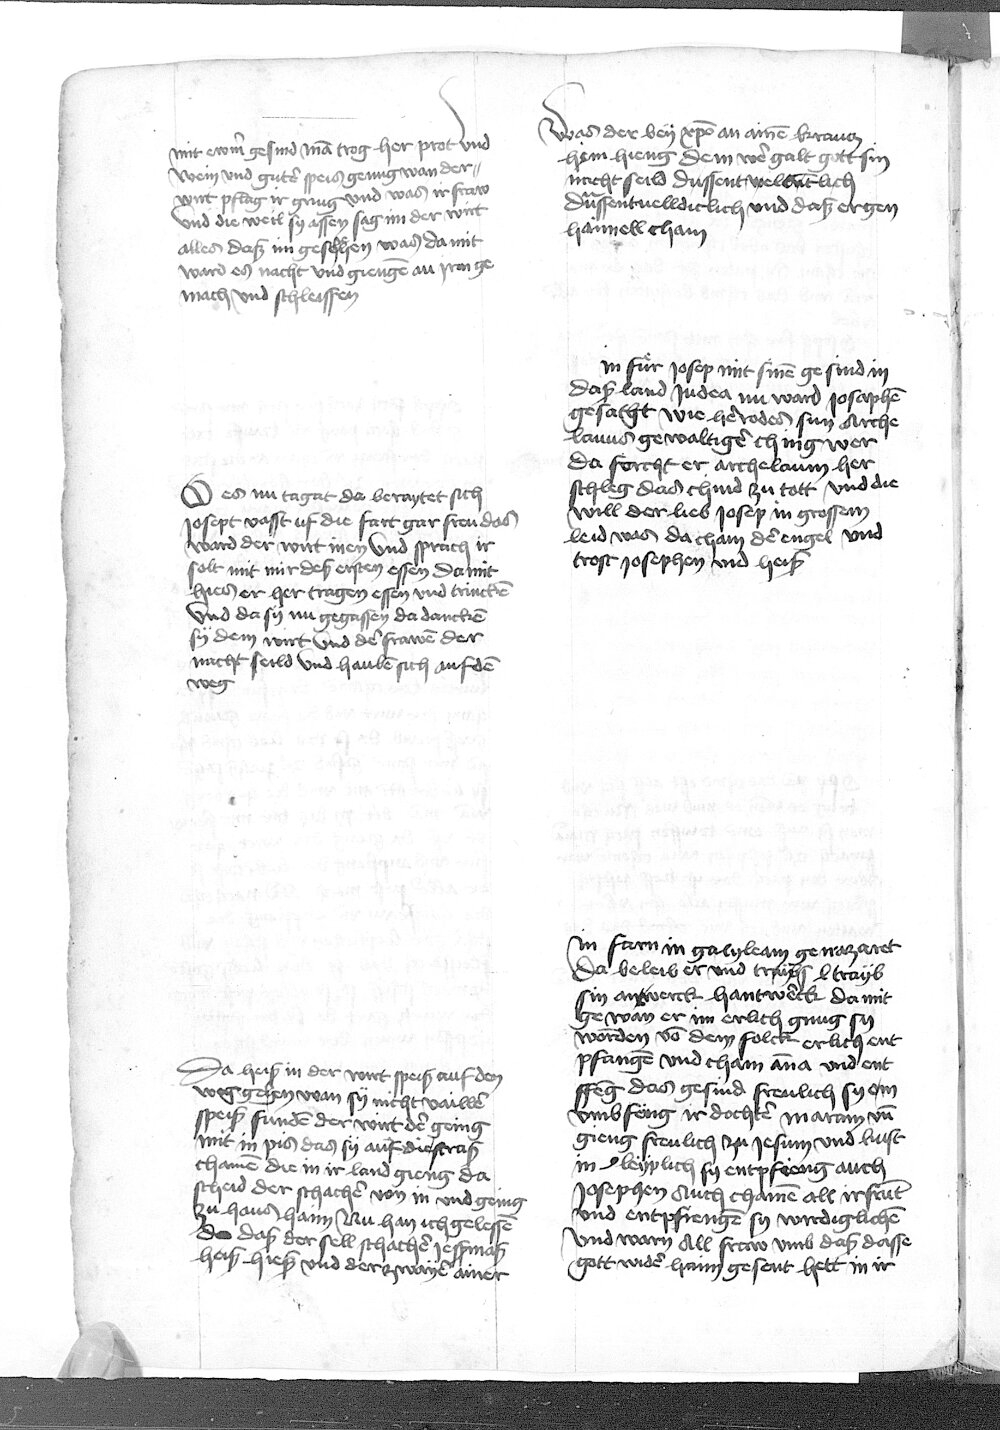 mit erwm̄ gesind mā trog her prot vnd
wein vnd gutē speis genug wan der
wirt pflag ir gnug vnd was ir fraw
vnd die weil sy assen sag im der wirt
alles daß im geschehen was da mit
ward es nacht vnd giengē an iren ge
mach vnd schleiffen
O es nu tagat da beraytet sich
Josept vasst uf die fart gar freu das
ward der wirt inen vnd sprach ir
solt mit mir deß ersten essen da mit
hies er her tragen essen vnd trinckē
vnd da sy nu gegassen da danckē
sy dem wirt vnd dē frawē der
nacht seild vnd haubē sich auf dē
weg
Da heiß in der wirt speiß auf den
weg geben wan sy nicht vaillē
speiß fundē der wirt dē geing
mit in pis das sy auf die straß
chamē die in ir land gieng da
scheid der schachē von in vnd geing
zu haus haim Nu han ich gelessē
daß der sell schachē Jessmaß
heiß hieß vnd der zwayē ainer
was der bey xpō an ainē kraucz
him hieng dem wē galt gott sin
nacht seild dussent weltntlich
dussentuelldiclich vnd daß er gen
hannell cham
in fūr Josep mit sinē gesind in
daß land Judea nu ward Josephē
gesatht wie hērodes sun Arche
lauus gewaltigē ching wer
da forcht er archelaum her
schleg das chind zu tott vnd die
will der lieb Josep in grossem
leid was da cham dē engel vnd
trost Josephen vnd heiß
in farn in galyleam gen nazaret
da beleib er vnd trayb
sin antwerck hantwerck da mit
ge wan er im erlich gnug sy
wordēn vō dem folck erlich ent
pfangē vnd cham āna vnd ent
pfēg das gesind freulich sy em
vmbfeng ir dochtē mariam vn̄
gieng freulich zu Jesum vnd kust
in leyplich sy entpfieng auch
Josephen Auch chamē all ir frūt
vnd entpfiengē sy wirdiglichē
vnd warn all fraw vmb daß dasse
gott widē haim gesent hett in ir